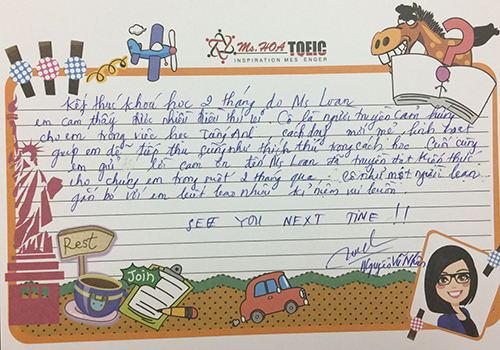 Ms.HOA TOEIC
INSPIRATION MESSENGER
Kết thúc khoá học 2 tháng do Ms Loan
em cảm thấy được nhiều điều thú vị. Cô là người truyền cảm hứng
cho em trong việc học Tiếng Anh cách dạy mới mẻ linh hoạt
giúp em dễ tiếp thu cũng như thích thú trong cách học. Cuối cùng
em gửi lời cảm ơn tới Ms Loan đã truyền đạt kiến thức
cho chúng em trong suốt 2 tháng qua. Cô như một người
gắn bó với em biết bao nhiêu kỉ niệm vui buồn.
SEE YOU NEXT TIME !!
Nguyễn Văn
Rest
Join